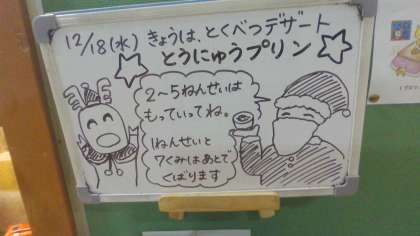 12/18(水) きょうは、とくべつデザート
とうにゅうプリン
2〜5ねんせいは
もっていってね。
1ねんせいと
7くみはあとで
くばります